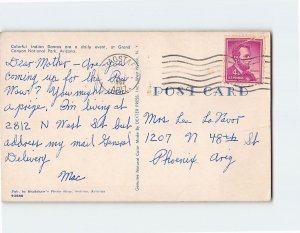 Colorful Indian Dances are a daily event, at Grand
Canyon National Park, Arizona.
Dear Mother - Are you
coming up for the Pow
Wows? You might win
a prize. I'm living at
2812 N West St but
address my mail General
Delivery
Mac
Pub. by Bradshaw's Photo Shop, Sedona, Arizona
Genuine Natural Color Made By DEXTER PRESS, INC.
POST CARD
4¢
Mrs Leo La Vavor
1207 N 48th St
Phoenix Ariz